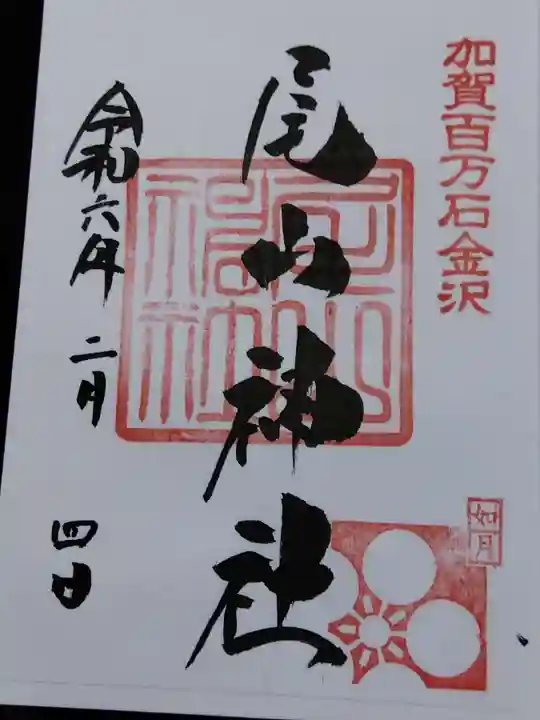 加賀百万石金沢
尾山神社
尾山神社
如月
令和六年 二月 四日